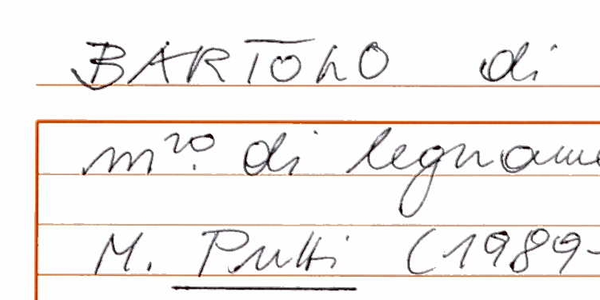 BARTOLO di
m.ro di legname
M. Putti (1989-